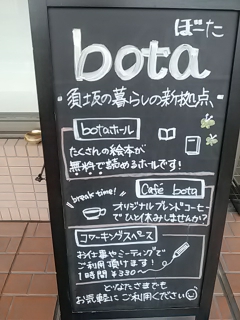 ぼーた
bota
須坂の暮らしの新拠点、
botaホール
たくさんの絵本が
無料で読めるホールです!
break time!
Café bota
オリジナルブレンドコーヒー
でひと休みしませんか?
コワーキングスペース
お仕事やミーティングで
ご利用頂けます!
1時間 ¥330〜
どなたさまでも
お気軽にご利用ください